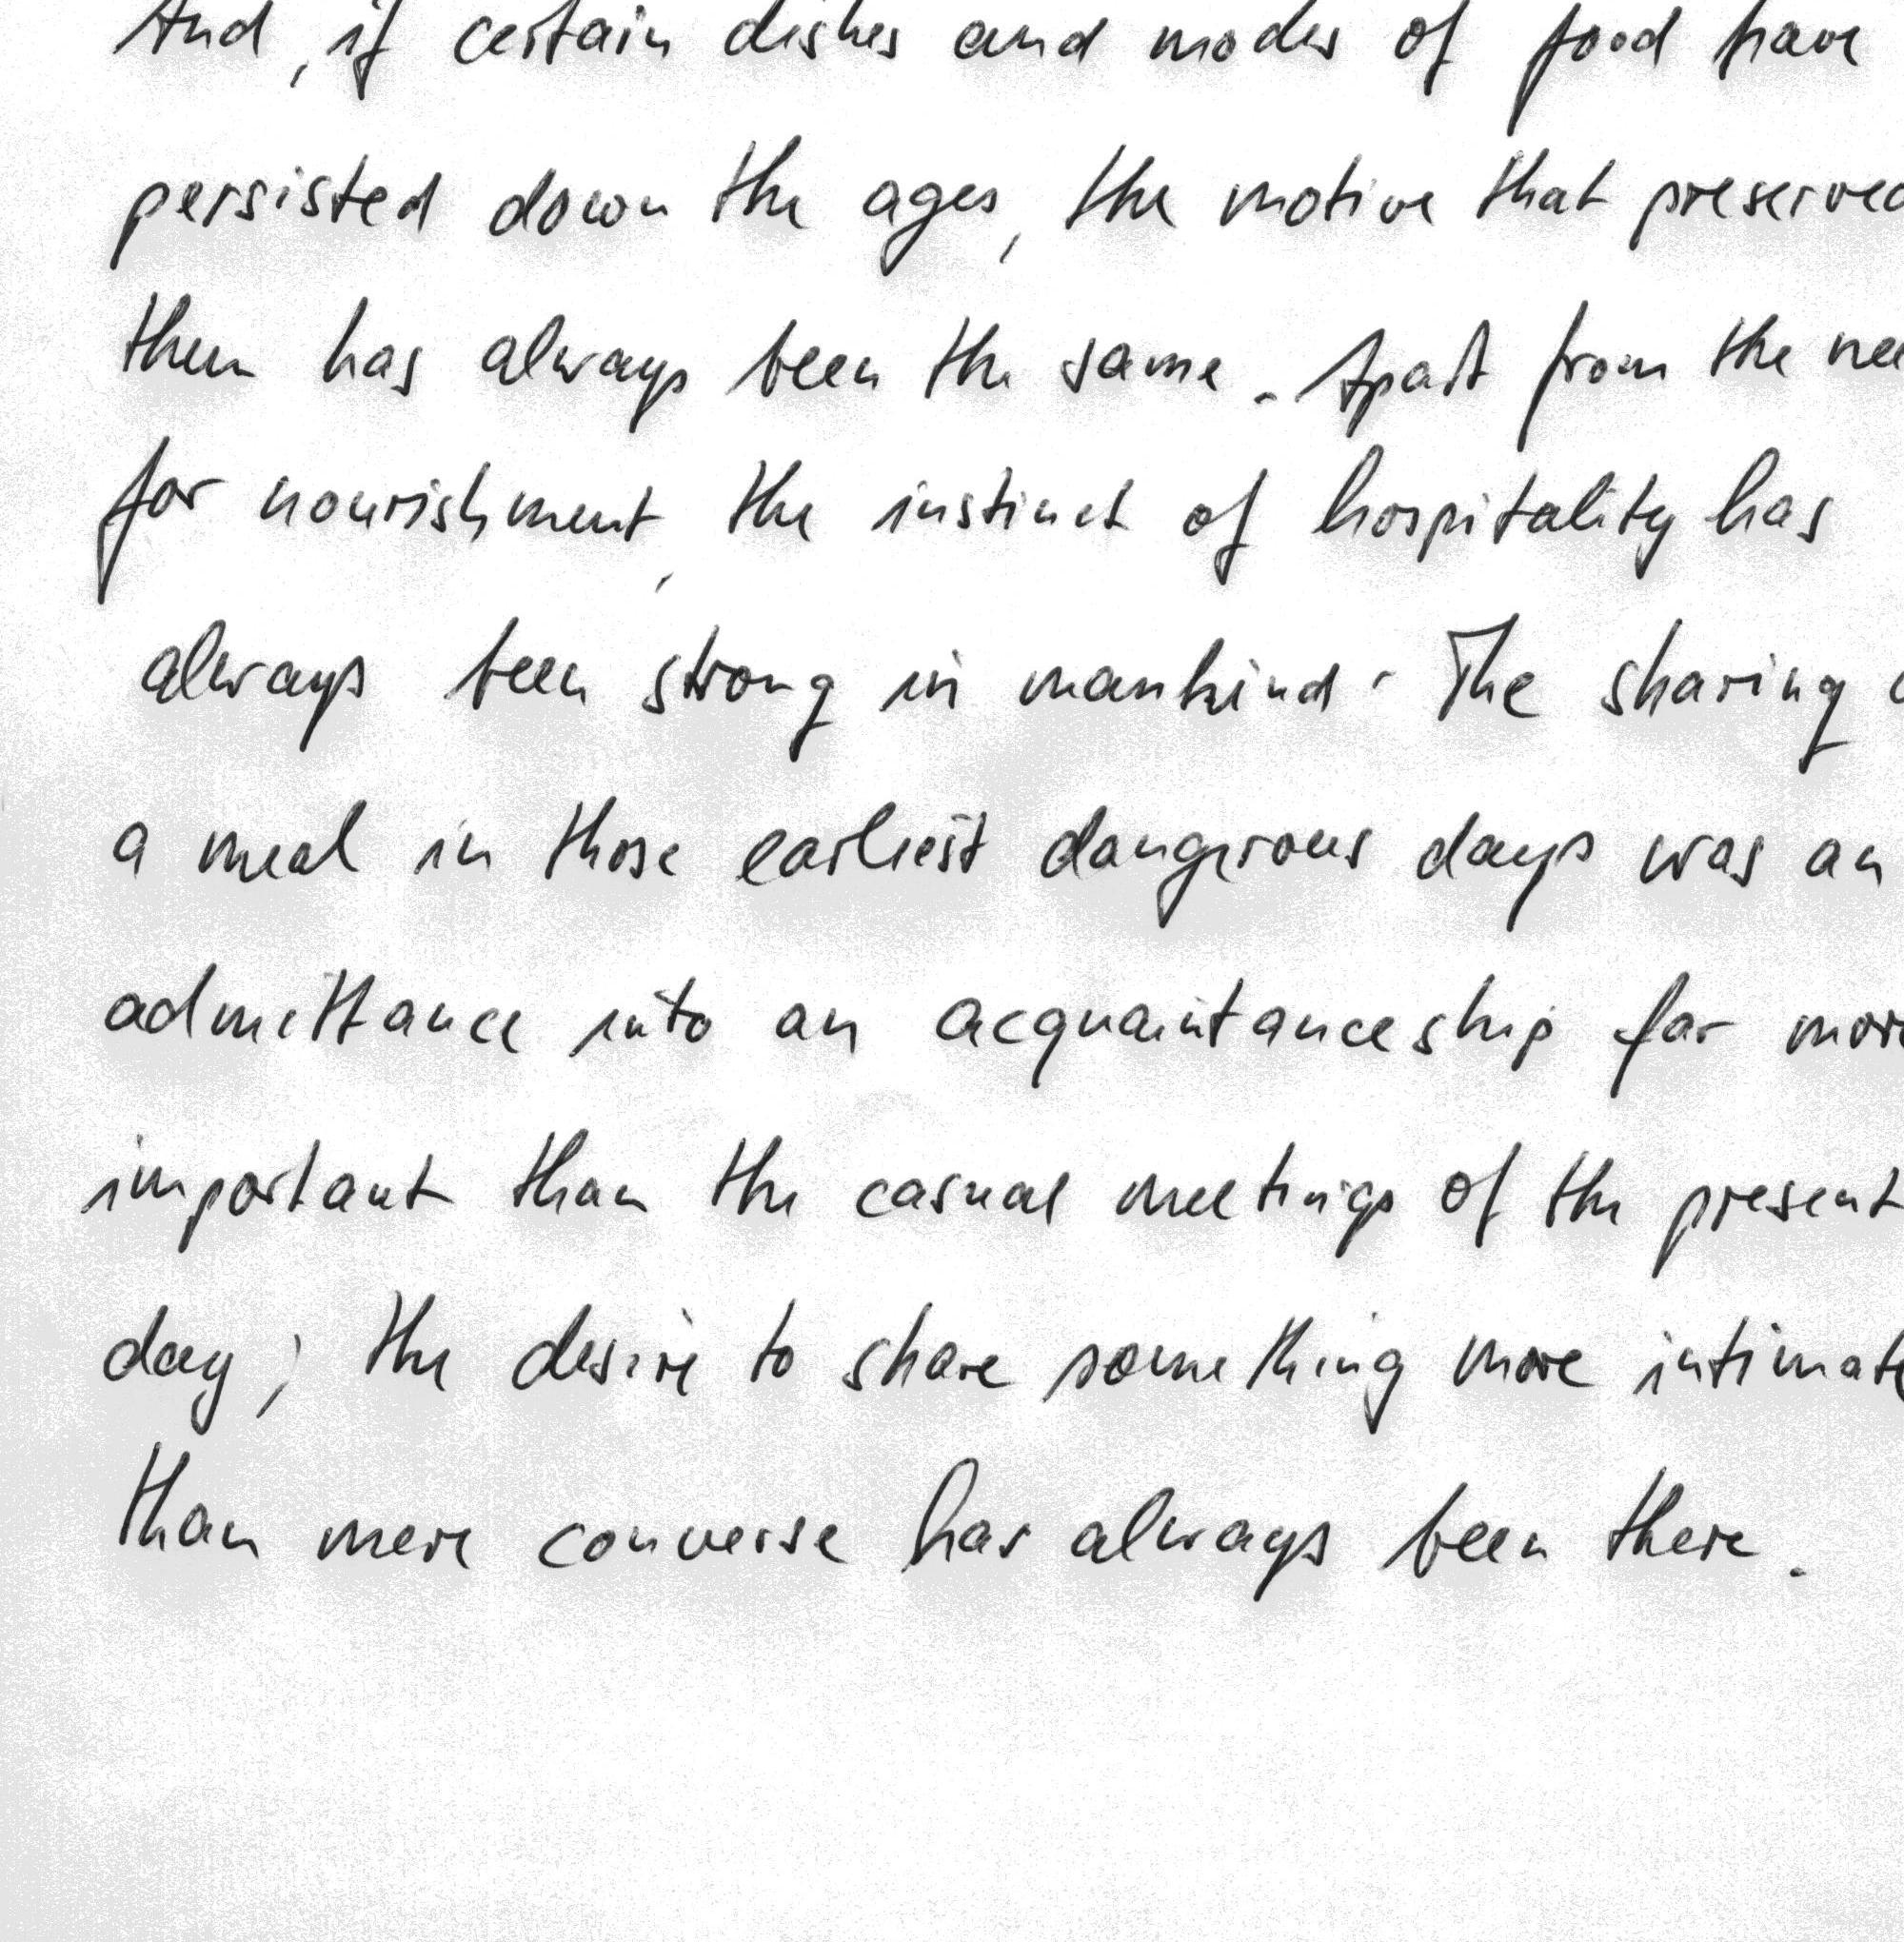 And, if certain dishes and modes of food have
persisted down the ages, the motive that preserved
them has always been the same. Apart from the nee
for nourishment, the instinct of hospitality has
always been strong in mankind. The sharing o
a meal in those earliest dangerous days was an
admittance into an acquaintanceship far more
important than the casual meetings of the present
day; the desire to share something more intimate
than mere converse has always been there.